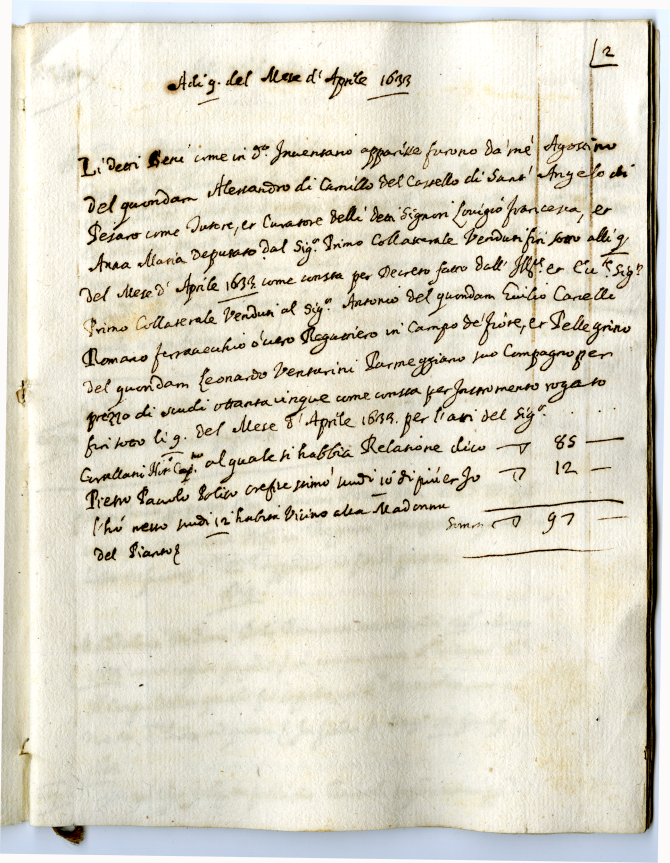 2
Adi 9. del Mese d'Aprile 1633
Li detti Beni come in d.o Inventario apparisce furono da mè Agostino
del quondam Alessandro di Camillo del Castello di Sant' Angelo di
Pesaro come Tutore, et Curatore delli detti Signori Luigio francesca, et
Anna Maria Deputato dal Sig.r Primo Collaterale Venduti fin sotto alli 9
del Mese d' Aprile 1633 come consta per Decreto fatto dall' Ill.re et Ecc.te Sig.r
Primo Collaterale Venduti al Sig.r Antonio del quondam Emilio Canelli
Romano ferravecchio ò vero Regattiero in Campo de fiore, et Pellegrino
del quondam Leonardo Venturini Parmeggiano suo Compagno per
prezzo di scudi ottanta cinque come consta per Instromento rogato
fin sotto li 9. del Mese d' Aprile 1633. per l'atti del Sig.r
al quale si habbia Relatione dico 85
Pietro Pauolo stimò scudi 10 di più et Io 12
l'hò messo scudi 12 habita Vicino alla Madonna
del Pianto Summa 97